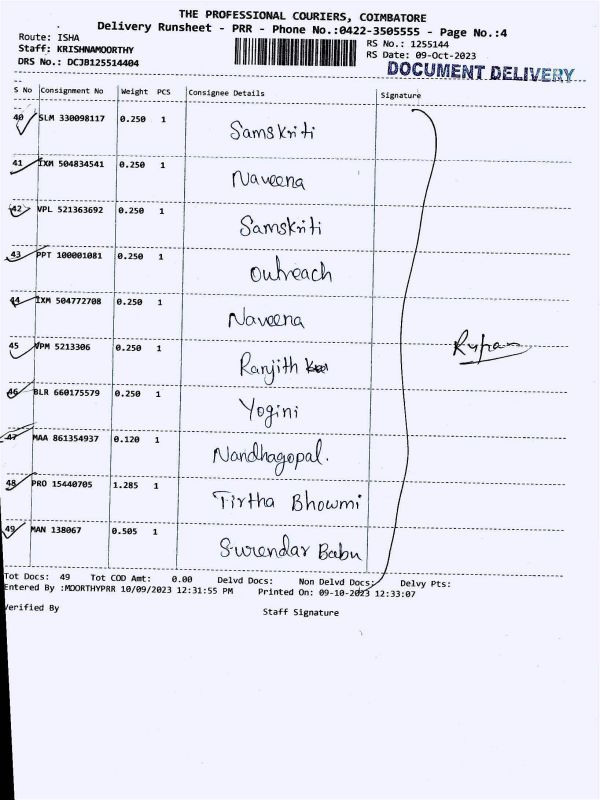 THE PROFESSIONAL COURIERS, COIMBATORE
Delivery Runsheet - PRR - Phone No.:0422-3505555 - Page No.:4
Route: ISHA
RS No.: 1255144
Staff: KRISHNAMOORTHY
RS Date: 09-Oct-2023
DRS No.: DCJB125514404
DOCUMENT DELIVERY
S No Consignment No Weight PCS Consignee Details Signature
40 SLM 330098117 0.250 1 Samskriti
41 IXM 504834541 0.250 1 Naveena
42 VPL 521363692 0.250 1 Samskriti
43 PPT 100001081 0.250 1 Outreach
44 IXM 504772708 0.250 1 Naveena
45 VPM 5213306 0.250 1 Ranjith
46 BLR 660175579 0.250 1 Yogini
47 MAA 861354937 0.120 1 Nandhagopal.
48 PRO 15440705 1.285 1 Tirtha Bhowmi
49 MAN 138067 0.505 1 Surendar Babu
Tot Docs: 49 Tot COD Amt: 0.00 Delvd Docs: Non Delvd Docs: Delvy Pts:
Entered By :MOORTHYPRR 10/09/2023 12:31:55 PM Printed On: 09-10-2023 12:33:07
Verified By Staff Signature